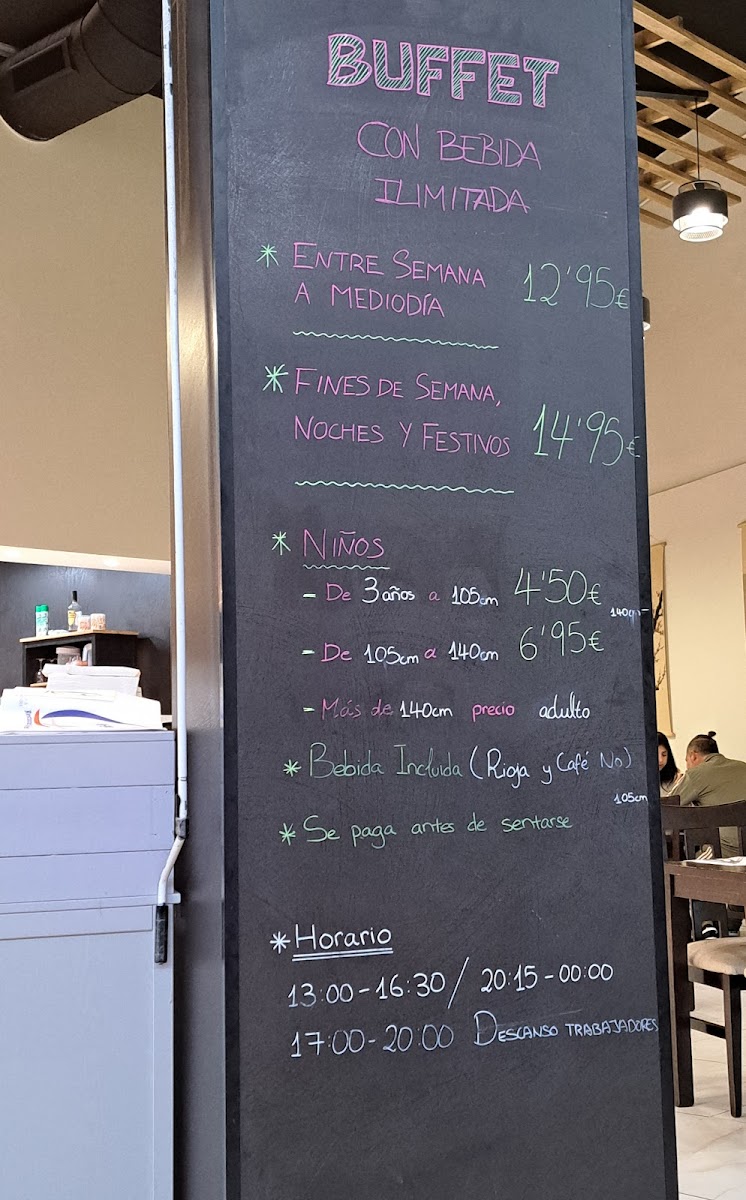 BUFFET
CON BEBIDA
ILIMITADA
* ENTRE SEMANA
A MEDIODÍA 12'95€
* FINES DE SEMANA,
NOCHES Y FESTIVOS 14'95€
* NIÑOS
- De 3 años a 105cm 4'50€
140cm-
- De 105cm a 140cm 6'95€
- Más de 140cm precio adulto
* Bebida Incluida (Rioja y Café No)
105cm
* Se paga antes de sentarse
* Horario
13:00-16:30/ 20:15-00:00
17:00-20:00 DESCANSO TRABAJADORES